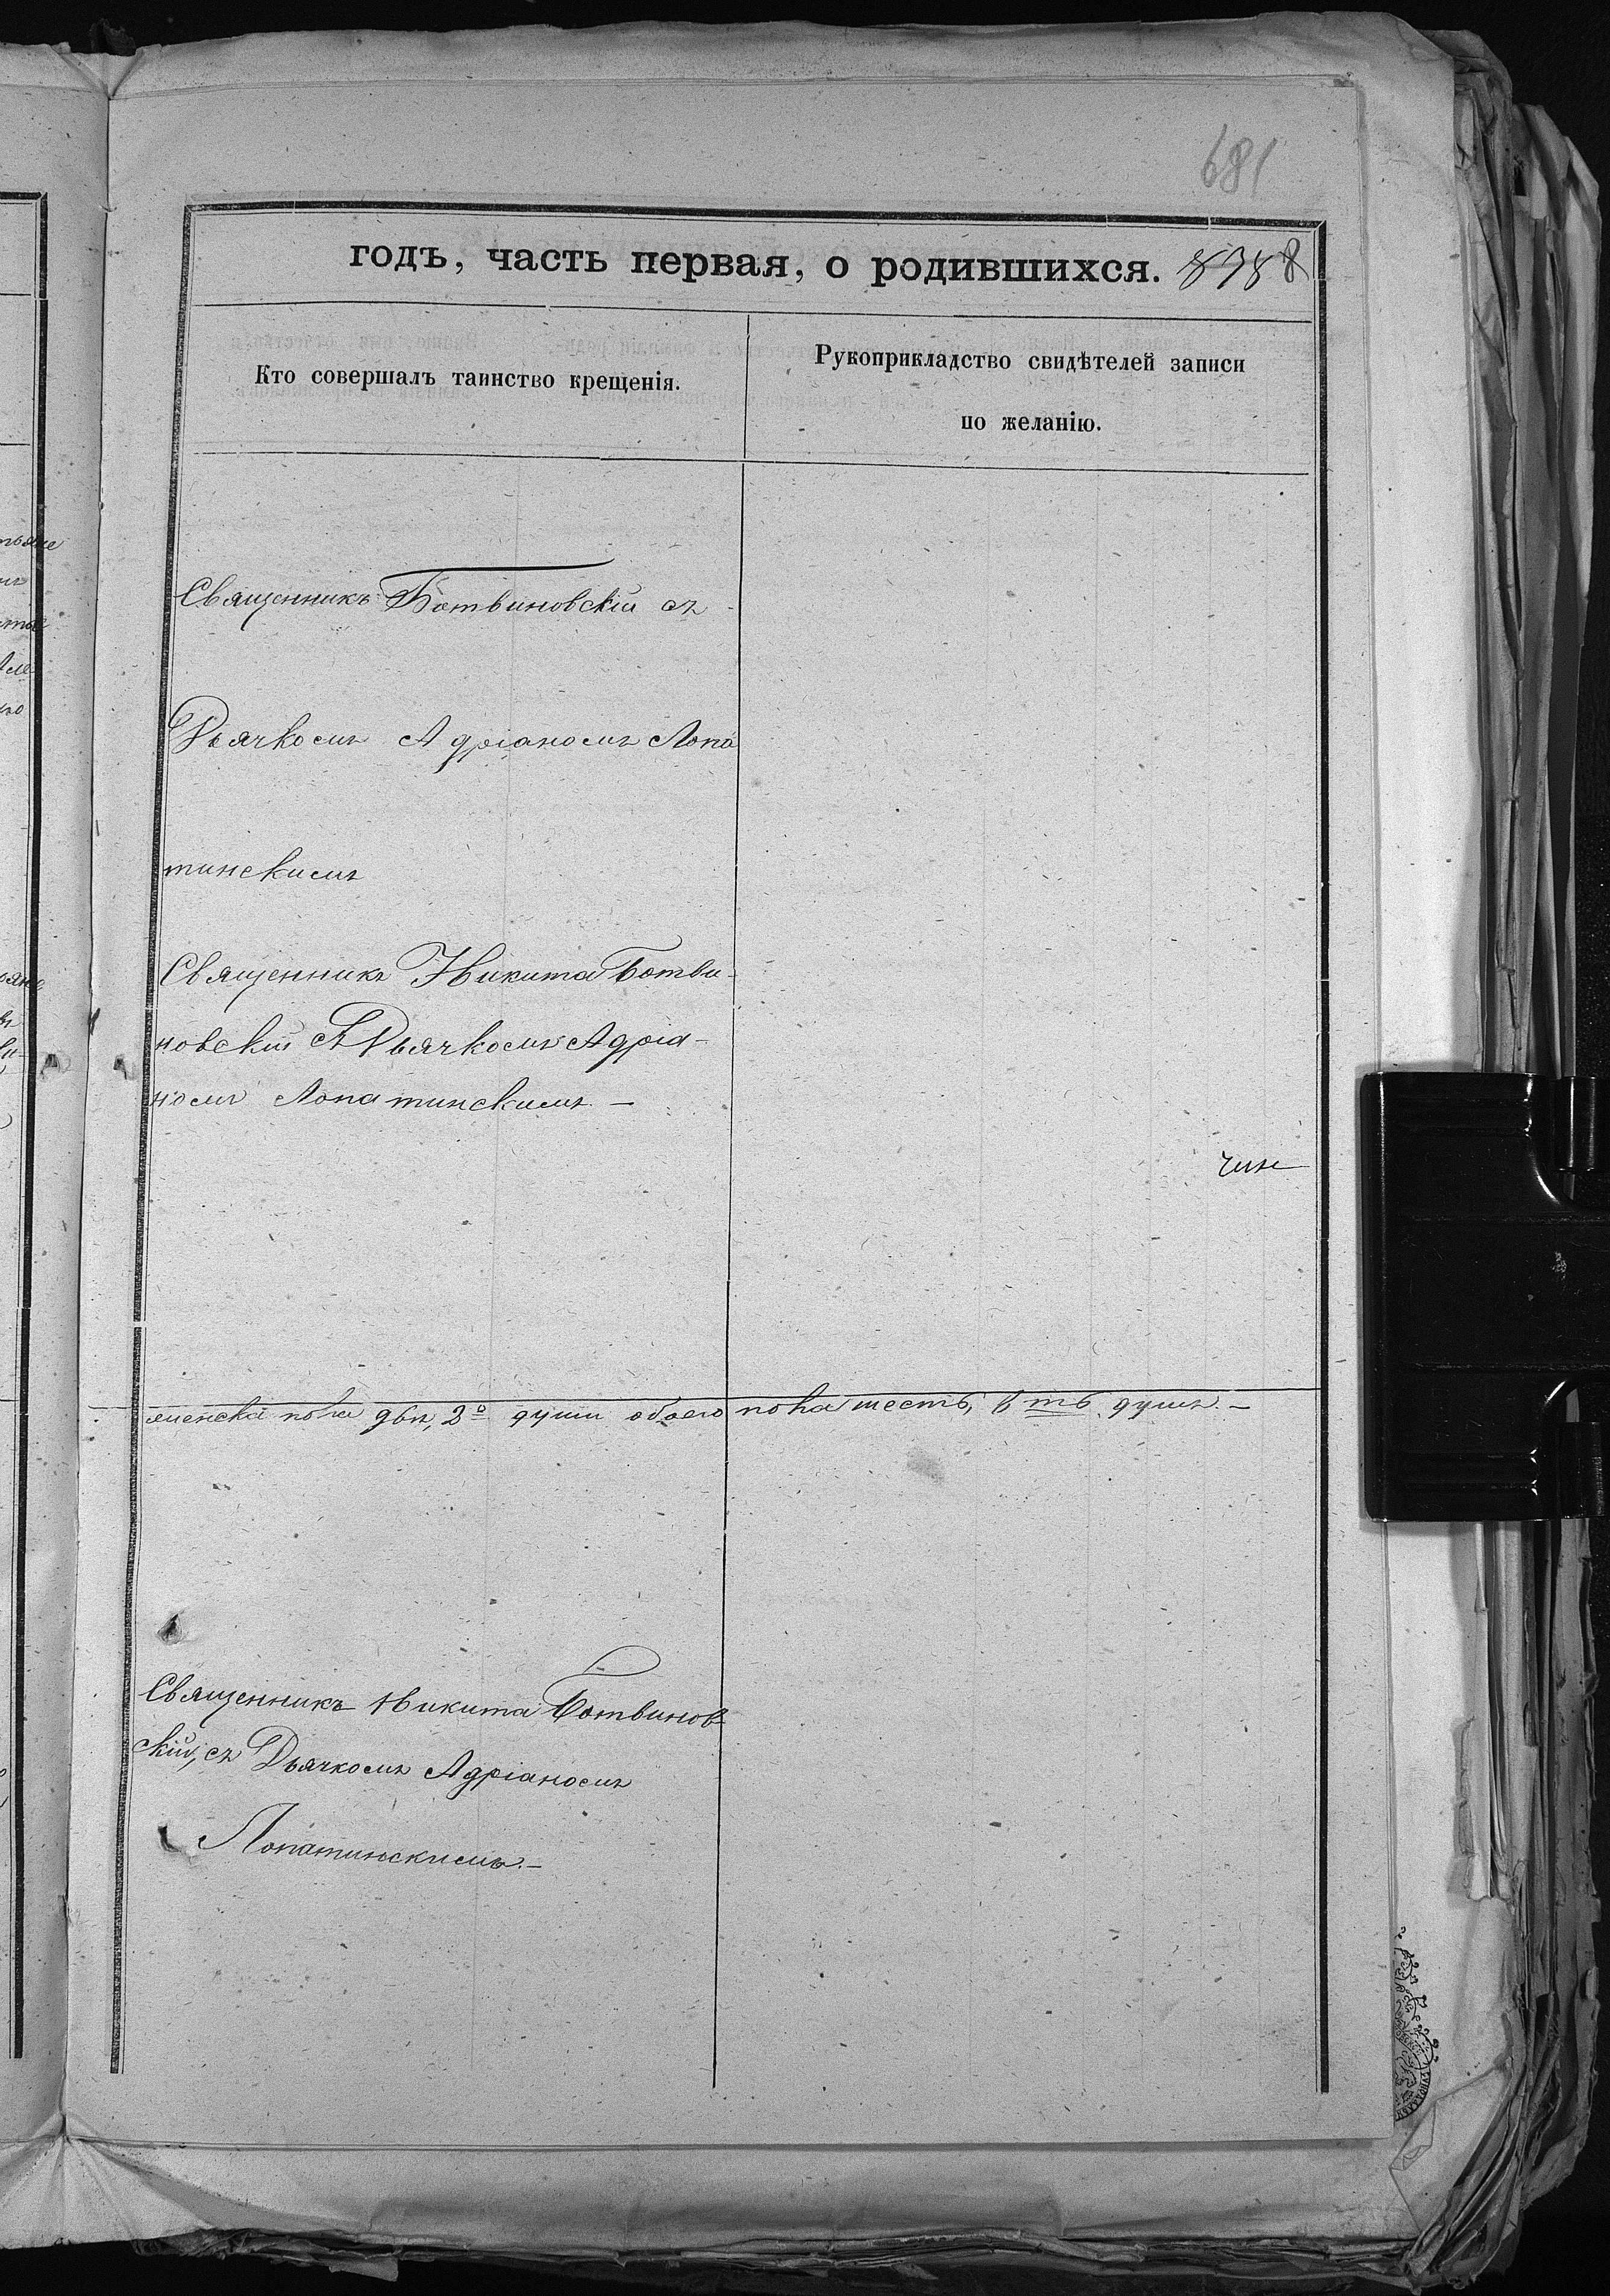 681
годъ, часть первая, о родившихся.
Кто совершалъ таинство крещенія.
Рукоприкладство свидѣтелей записи
по желанію.
Священникъ Ботвиновскій съ
Дьячкомъ Адріаномъ Лопа
тинскимъ
Священникъ Никита Ботви-
новскій съ Дьячкомъ Адріа-
номъ Лопатинскимъ. —
женска пола двѣ, 2º души обоего пола шесть, 6 ть душъ. —
Священникъ Никита Ботвинов-
скій, съ Дьячкомъ Адріаномъ
Лопатинскимъ. —